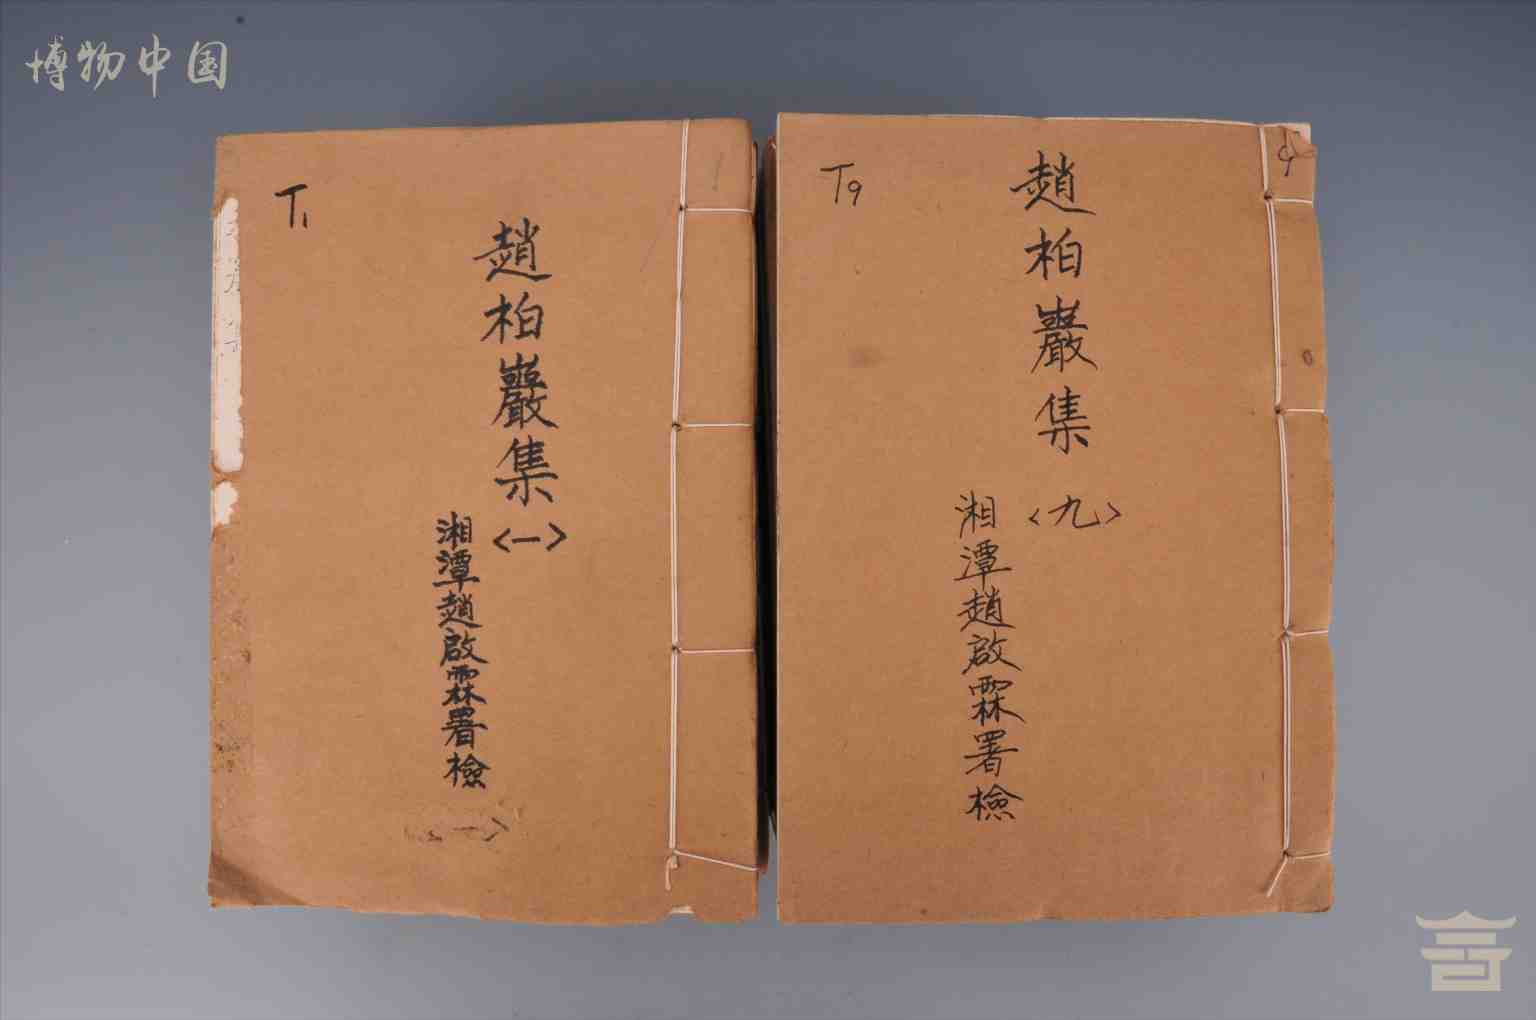 博物中国
T1
趙柏巖集
<一>
湘潭趙啟霖署檢
T9
9
趙柏巖集
<九>
湘潭趙啟霖署檢